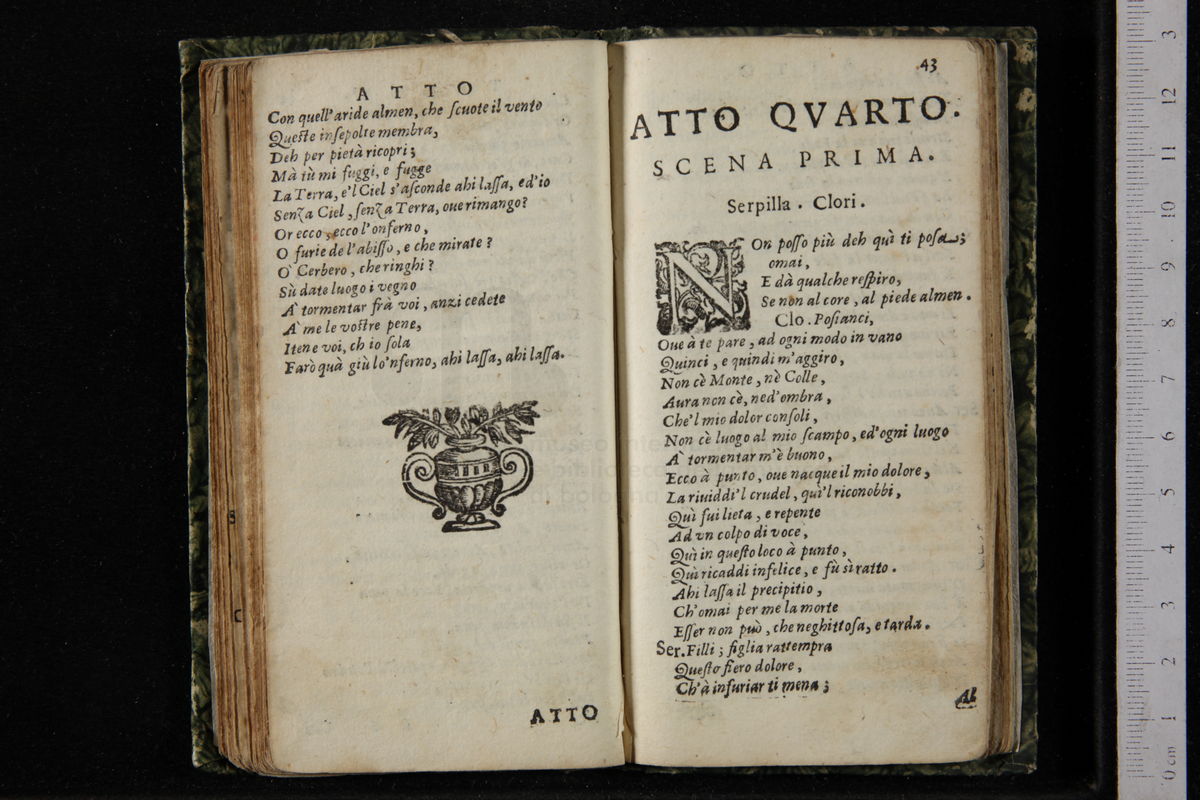 ATTO
Con quell'aride almen, che ſcuote il vento
Queſte inſepolte membra,
Deh per pietà ricopri;
Mà tù mi fuggi, e fugge
La Terra, e'l Ciel s'aſconde ahi laſſa, ed'io
Senza Ciel, ſenza Terra, oue rimango?
Or ecco, ecco l'onferno,
O furie de l'abiſſo, e che mirate?
O' Cerbero, che ringhi?
Sù date luogo i vegno
A' tormentar frà voi, anzi cedete
A' me le voſtre pene,
Itene voi, ch io ſola
Farò quà giù lo'nferno, ahi laſſa, ahi laſſa.
ATTO
43
ATTO QVARTO.
SCENA PRIMA.
Serpilla. Clori.
NOn poſſo più deh quì ti poſa;
omai,
E dà qualche reſpiro,
Se non al core, al piede almen.
Clo. Poſianci,
Oue à te pare, ad ogni modo in vano
Quinci, e quindi m'aggiro,
Non cè Monte, nè Colle,
Aura non cè, ned'ombra,
Che'l mio dolor conſoli,
Non cè luogo al mio ſcampo, ed'ogni luogo
A' tormentar m'è buono,
Ecco à punto, oue nacque il mio dolore,
La riuiddi'l crudel, quì'l riconobbi,
Quì fui lieta, e repente
Ad vn colpo di voce,
Quì in queſto loco à punto,
Quì ricaddi infelice, e fù sì ratto.
Ahi laſſa il precipitio,
Ch'omai per me la morte
Eſſer non può, che neghittoſa, e tarda.
Ser. Filli; figlia rattempra
Queſto fiero dolore,
Ch'à infuriar ti mena;
Al